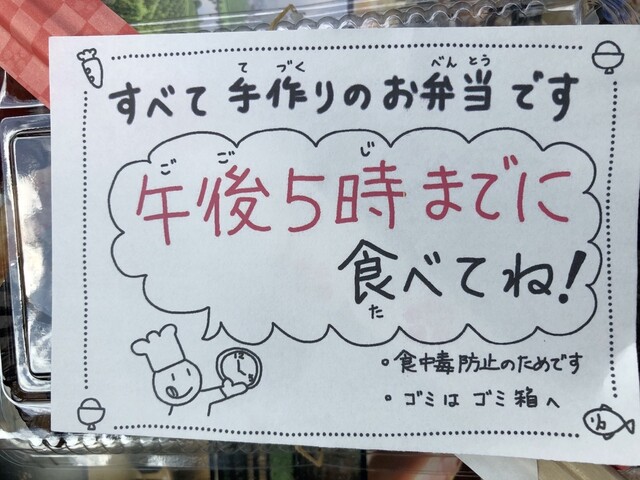 て づく べんとう
すべて手作りのお弁当です
ご ご じ
午後5時までに
食べてね!
た
12
。食中毒防止のためです
。ゴミはゴミ箱へ